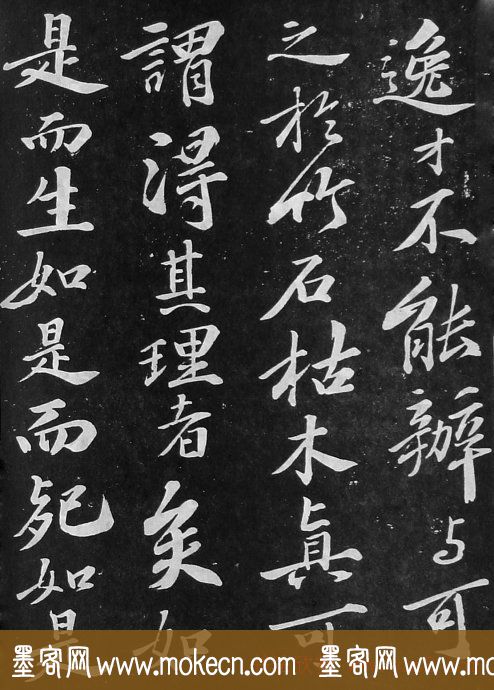 逸才不能辦与可
之於竹石枯木真可
謂得其理者矣如
是而生如是而死如是
墨客网 www.mokecn.com 墨客网 www.mokecn.com